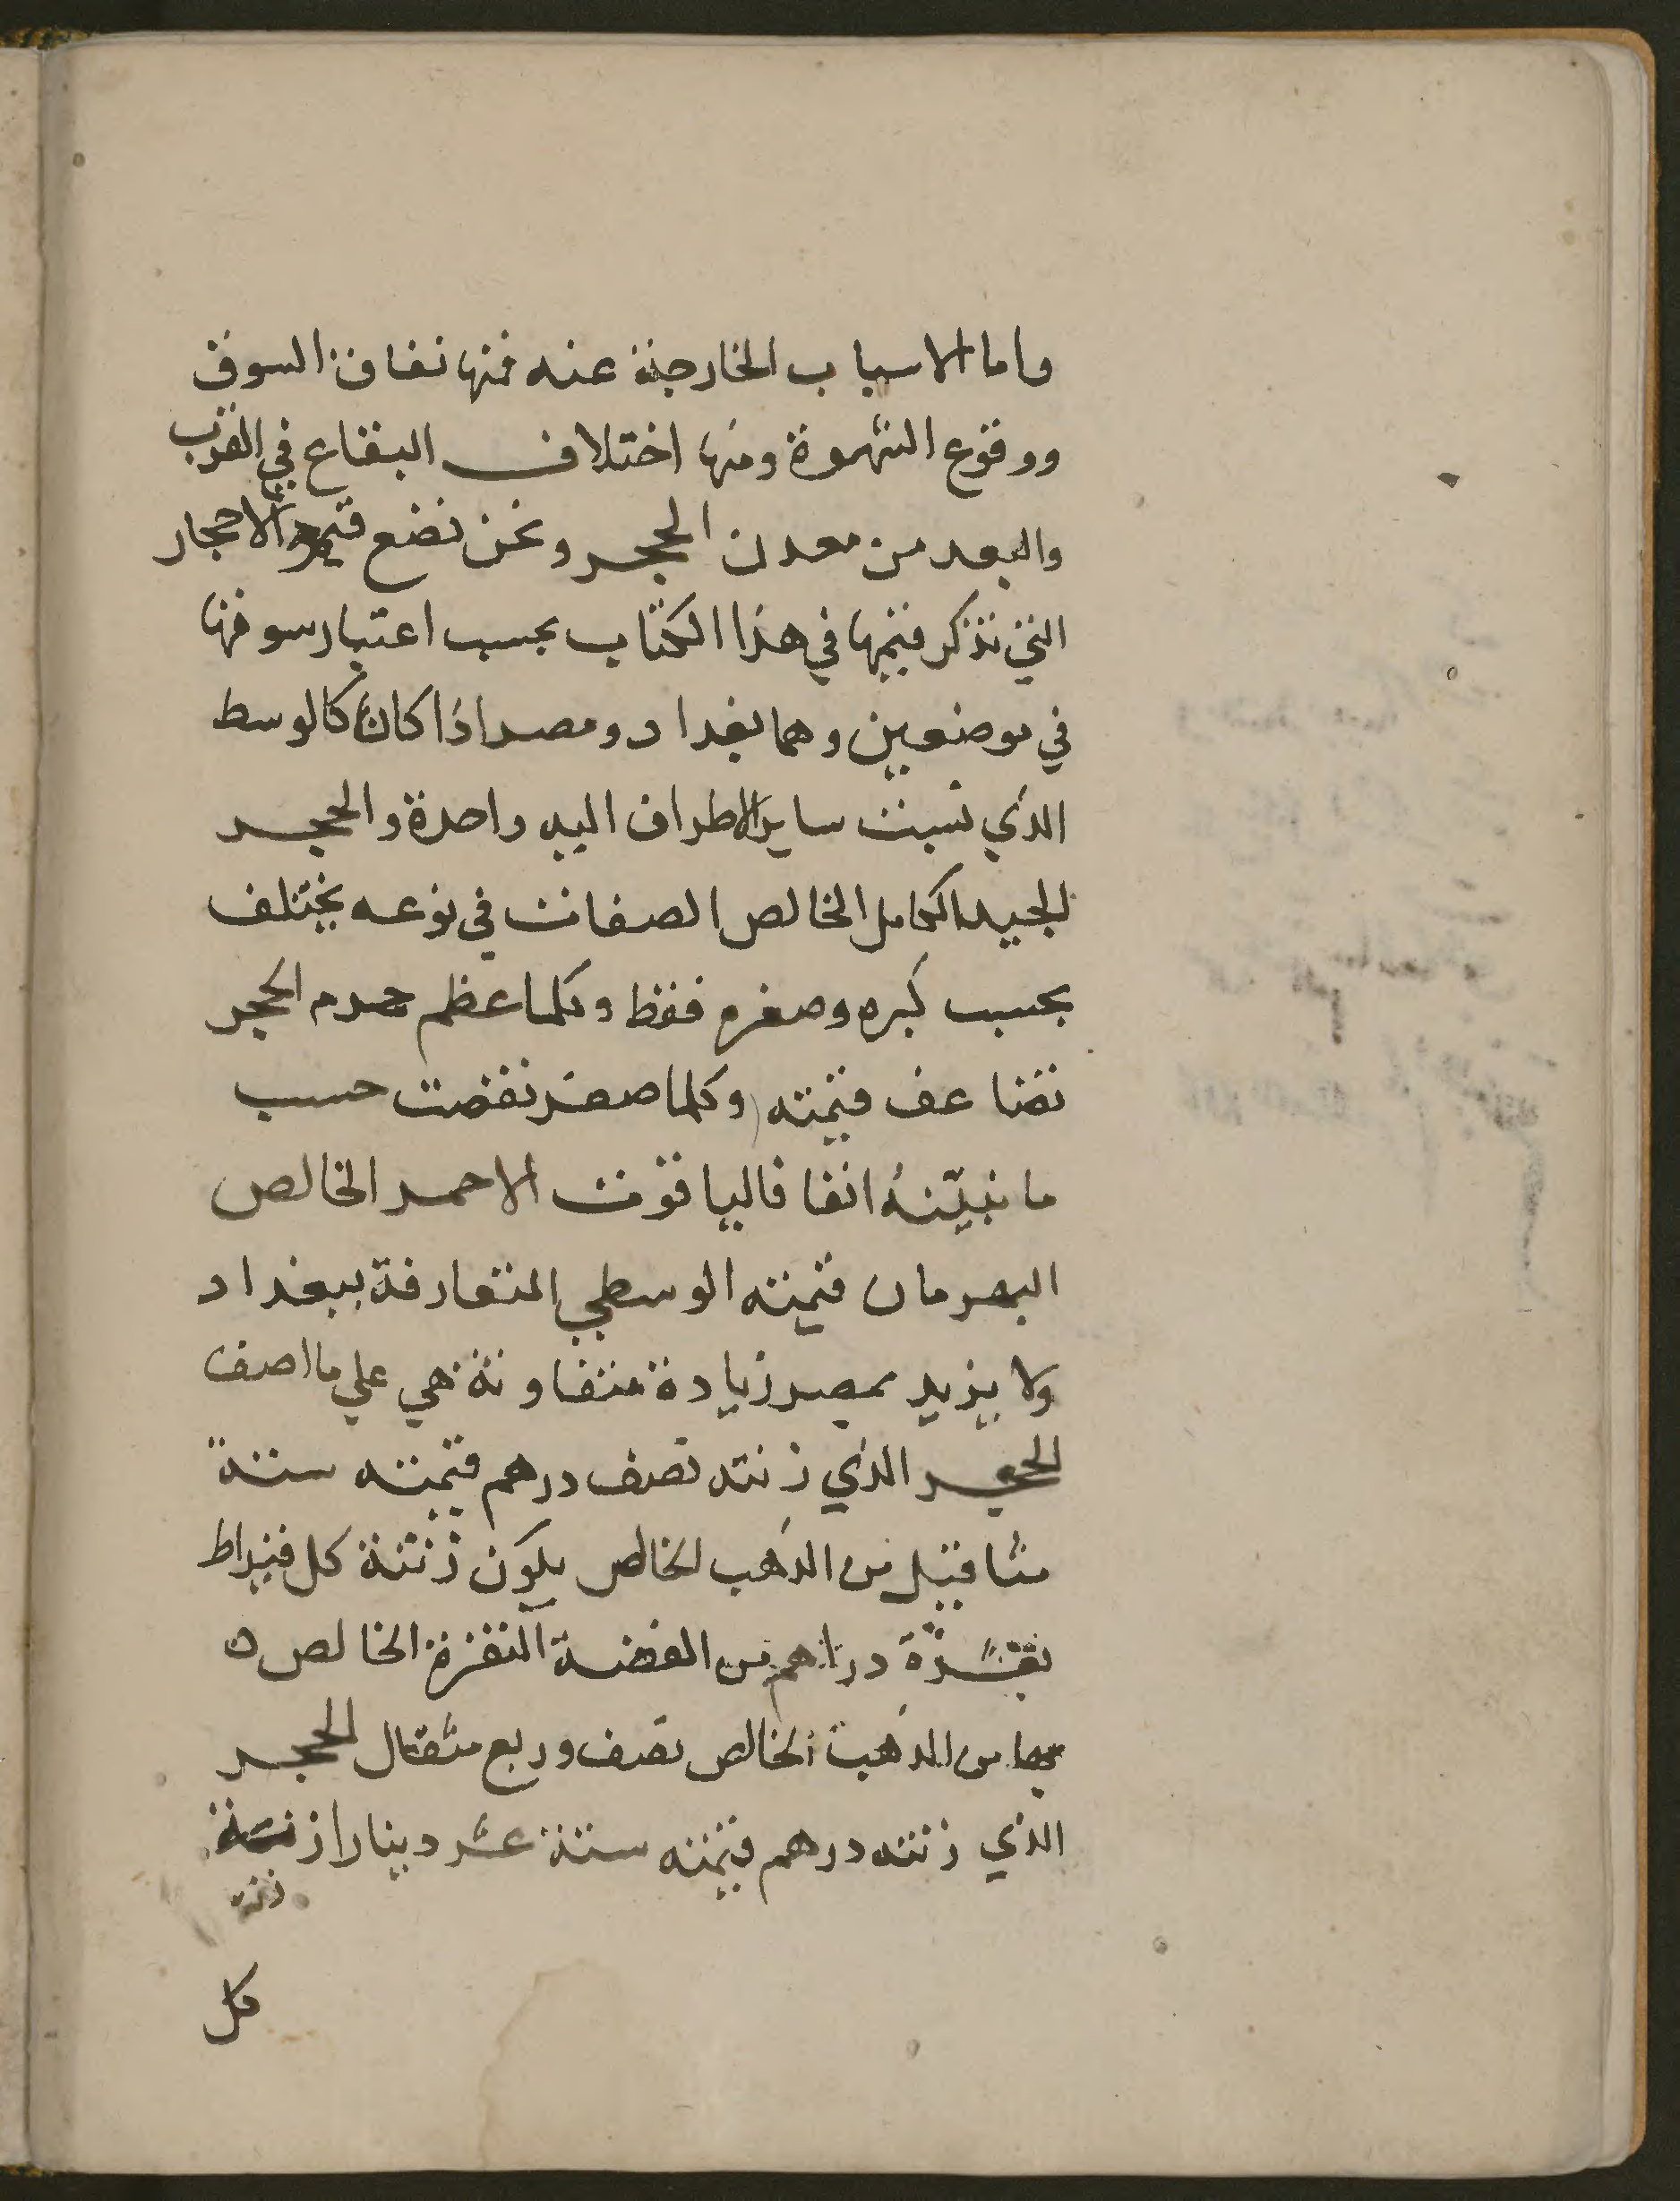 واما الاسباب الخارجة عنه فمنها نفاق السوق
ووقوع الشهوة ومنها اختلاف البقاع في القرب
والبعد من معدن الحجر ونحن نضع قيم الاحجار
التي نذكر قيمها في هذا الكتاب بحسب اعتبار سوقها
في موضعين وهما بغداد ومصر اذا كانا كالوسط
الذي نسبت ساير الاطراف اليه واحدة والحجر
الجيد الكامل الخالص الصفات في نوعه يختلف
بحسب كبره وصغره فقط وكلما عظم جرم الحجر
تضاعف قيمته وكلما صغر نقصت حسب
ما نبيّنهُ انفا فالياقوت الاحمر الخالص
البهرمان قيمته الوسطي المتعارفة ببغداد
ولا يزيد بمصر زيادة متفاوتة هي علي ما اصف
الحجر الذي زنته نصف درهم قيمته ستة
مثاقيل من الذهب الخالص يكون زنتة كل قيراط
دراهم من الفضة النقرة الخالص ٥
من الذهب الخالص نصف وربع مثقال الحجر
الذي زنته درهم قيمته ستة عشر دينارا زنتة
زنة
كل